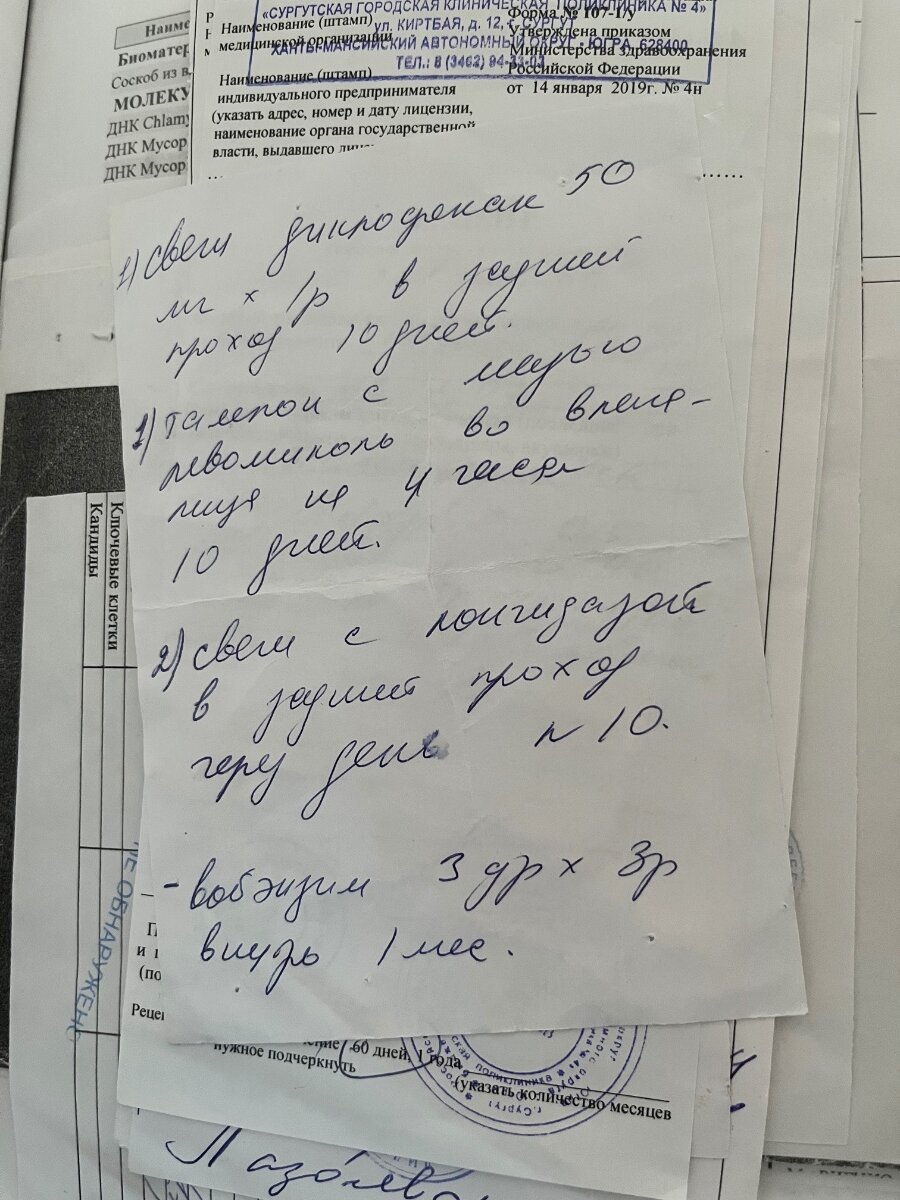 Наиме
Биоматер
Соскоб из в
МОЛЕКУ
ДНК Chlamy
ДНК Мусор
ДНК Мусор
«СУРГУТСКАЯ ГОРОДСКАЯ КЛИНИЧЕСКАЯ ПОЛИКЛИНИКА № 4»
ул. КИРТБАЯ, д. 12, г. СУРГУТ
ХАНТЫ-МАНСИЙСКИЙ АВТОНОМНЫЙ ОКРУГ - ЮГРА, 628400
ТЕЛ.: 8 (3462) 94-33-03
Наименование (штамп)
медицинской организации
Наименование (штамп)
индивидуального предпринимателя
(указать адрес, номер и дату лицензии,
наименование органа государственной
власти, выдавшего
Форма № 107-1/у
Утверждена приказом
Министерства здравоохранения
Российской Федерации
от 14 января 2019г. № 4н
1) Свечи диклофенак 50
мг х 1р в задний
проход 10 дней.
1) тампон с мазью
левомиколь во влага-
лище на 4 часа
10 дней.
2) свечи с лонгидазой
в задний проход
через день n 10.
- вобэнзим 3 др х 3р
внутрь 1 мес.
Ключевые клетки
Кандиды
НЕ ОБНАРУЖЕНО
П
и
(по
Рецеп
60 дней, 1 года
нужное подчеркнуть
(указать количество месяцев